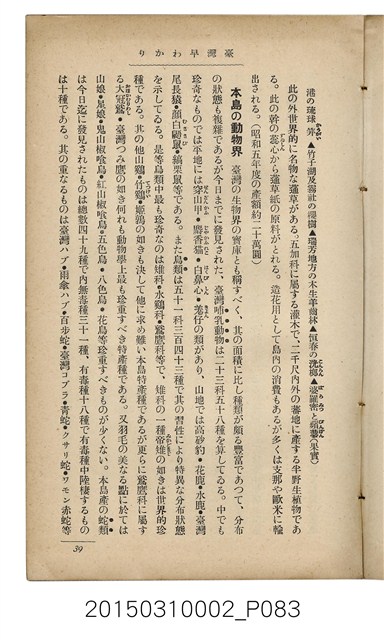 臺灣早わかり
港の琉球弁▲竹子湖及霧社の櫻樹▲瑞芳地方の木生羊齒林▲恒春の
此の外世界的に名物な蓪草がある。五加科に屬する灌木で、二千尺內外の蕃地に產する半野生植物であ
る。此の幹の蕊心から蓪草紙の原料がとれる。造花川として島內の消費もあるが多くは支那や歐米に輸
出される。（昭和五年度の產額約二十萬圓）
本島の動物界 臺灣の生物界の寶庫とも稱すべく、其の面積に比し種類が頗る豐富であつて、分布
の狀態も複雜であるが今日までに發見された、臺灣哺乳動物は二十三科五十八種を算してゐる。中でも
珍奇なものでは平地には穿山甲・麝香猫・白鼻心・羗仔の類があり、山地では高砂豹・花鹿・水鹿・臺灣
尾長猿・顏白鼯鼠・縞栗鼠等である。また鳥類は五十一科三百四十三種で其の習性により特異な分布狀態
を示してゐる。是等鳥類中最も珍奇なのは雉科・水鷄科・鷲鷹科等で、雉科の一種帝雉の如きは世界的珍
種である。其の他山鷄・竹鷄・姬鶉の如きも決して他に求め難い本島特產種であるが更らに鷲鷹科に屬す
る大冠鷲・臺灣つみ鷹の如き何れも動物學上最も珍重すべき特產種である。又羽毛の美なる點に於ては
山娘・星娘・鬼山椒喰鳥・紅山椒喰鳥・五色鳥・八色鳥・花鳥等珍重すべきものが少くない。本島產の蛇類
は今日迄に發見されたものは總數四十九種で內無毒種三十一種、有毒種十八種で有毒種中陸棲するもの
は十種である。其の重なるものは臺灣ハブ・雨傘ハブ・百步蛇・臺灣コブラ・靑蛇・クサリ蛇・ワモン赤蛇等
39
20150310002_P083